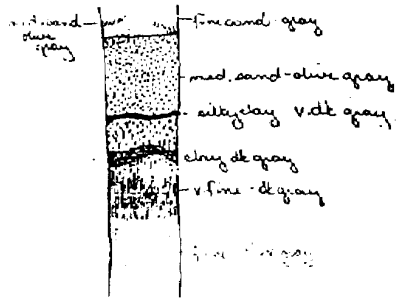 med sand
olive
gray
fine sand - gray
med. sand - olive gray
silty clay v. dk gray
clay dk gray
v. fine - dk gray
fine gray